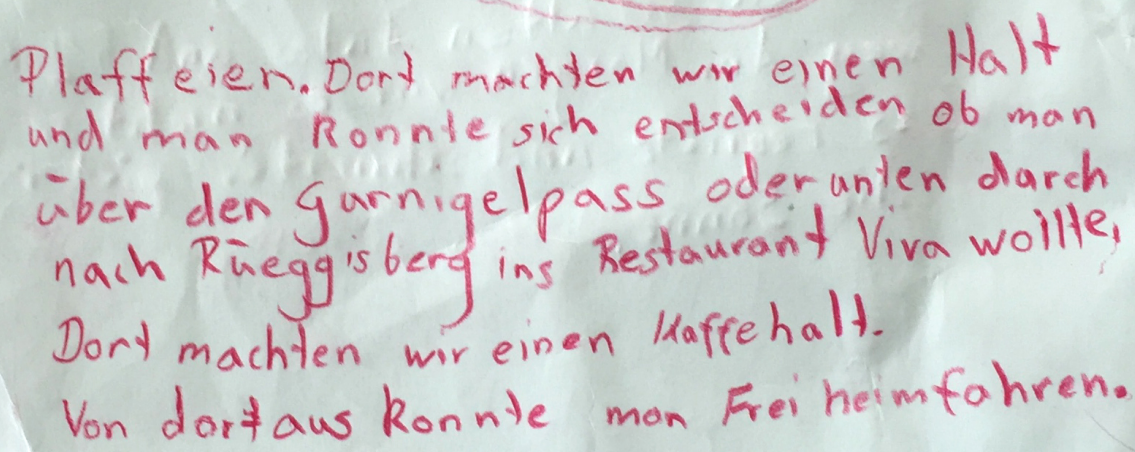 Plaffeien. Dort machten wir einen Halt
und man konnte sich entscheiden ob man
über den gurnigelpass oder unten darch
nach Rüeggisberg ins Restaurant Viva wollte,
Dort machten wir einen Kaffehalt.
Von dort aus konnte man Frei heimfahren.